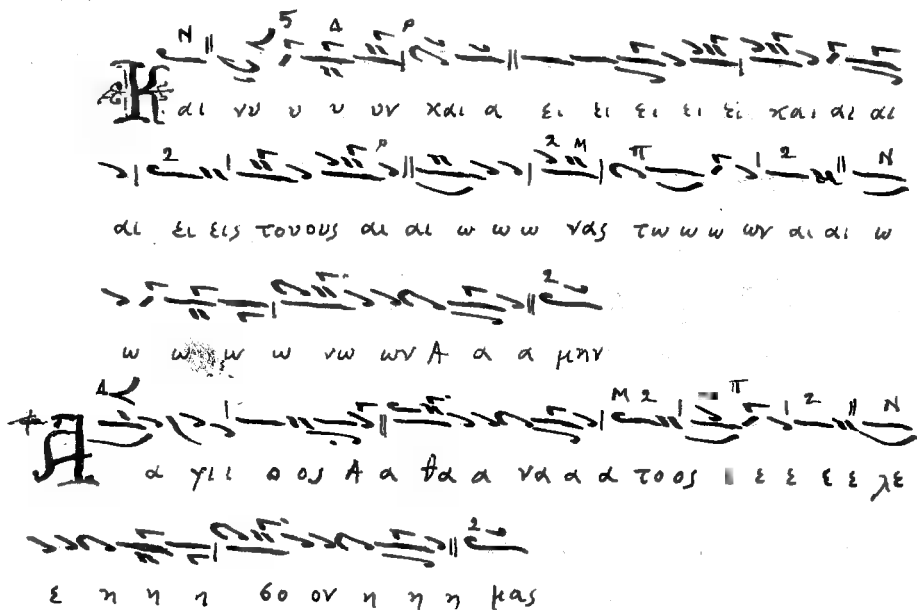 Και νυ υ υ υν και α ει ει ει ει εί και αι αι
αι ει εις τουους αι αι ω ω ω νας τω ω ω ων αι αι ω
ω ω ω ω νω ων Α α α μην
Α α γιι ο ος Α α θα α να α α τοος ε ε ε ε λε
ε η η η σο ον η η η μας